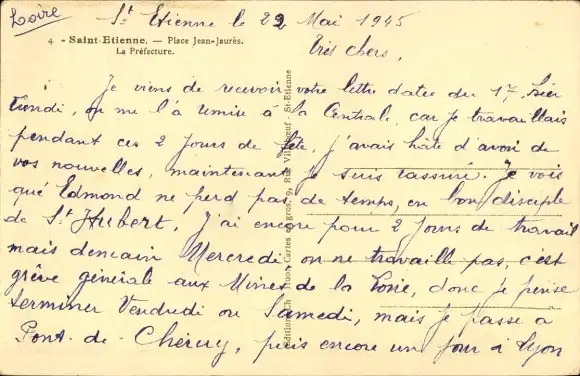 Loire
St Etienne le 22 Mai 1945
4. - Saint-Etienne. — Place Jean-Jaurès.
La Préfecture.
Très chers,
Je viens de recevoir votre lettre datée du 17. hier
lundi, on me l'a remise à la Centrale, car je travaillais
pendant ces 2 jours de fête, j'avais hâte d'avoir de
vos nouvelles, maintenant je suis rassuré. Je vois
qué Edmond ne perd pas de temps, en bon disciple
de St Hubert, J'ai encore pour 2 jours de travail
mais demain Mercredi on ne travaille pas, c'est
grêve générale aux Mines de la Loire, donc je pense
terminer Vendredi ou Samedi, mais je passe a
Pont-de-Chéruy, puis encore un jour à Lyon
Editions Ch. Cartes en gros, 9, Rue Villebœuf - St-Etienne